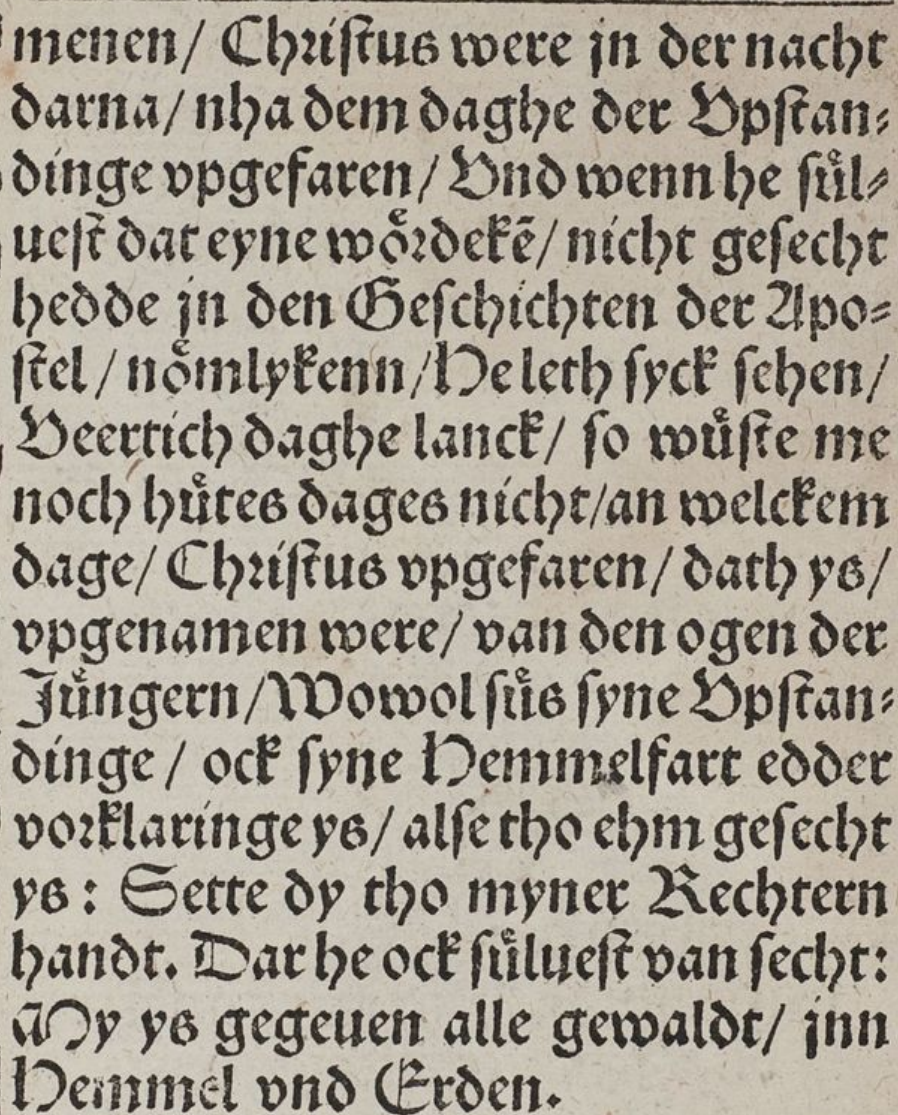 menen/ Chriſtus were jn der nacht
darna/ nha dem daghe der Vpſtan⸗
dinge vpgefaren/ Vnd wenn he ſuͤl⸗
ueſt dat eyne woͤrdekē/ nicht geſecht
hedde jn den Geſchichten der Apo⸗
ſtel/ noͤmlykenn/ He leth ſyck ſehen/
Veertich daghe lanck/ ſo wuͤſte me
noch huͤtes dages nicht/ an welckem
dage/ Chriſtus vpgefaren/ dath ys/
vpgenamen were/ van den ogen der
Juͤngern/ Wowol ſuͤs ſyne Vpſtan⸗
dinge/ ock ſyne Hemmelfart edder
vorklaringe ys/ alſe tho ehm geſecht
ys: Sette dy tho myner Rechtern
handt. Dar he ock ſuͤlueſt van ſecht:
My ys gegeuen alle gewaldt/ jnn
Hemmel vnd Erden.